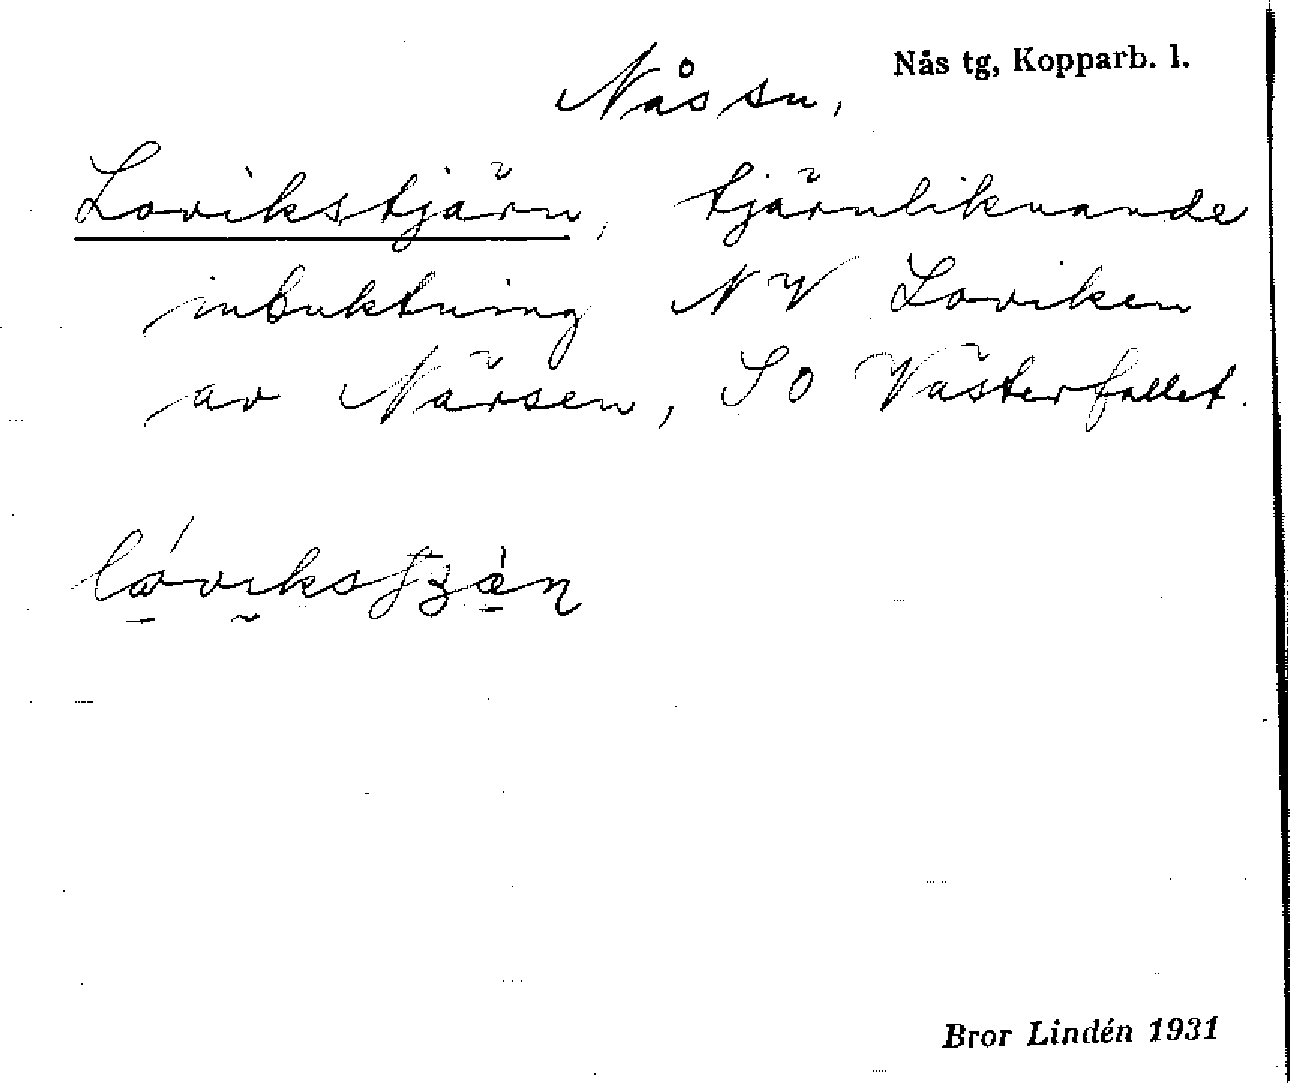 Nås tg, Kopparb. l.
Nås sn,
Lovikstjärn, tjärnliknande
inbuktning NV Loviken
av Närsen, SO Västerfallet.
Bror Lindén 1931